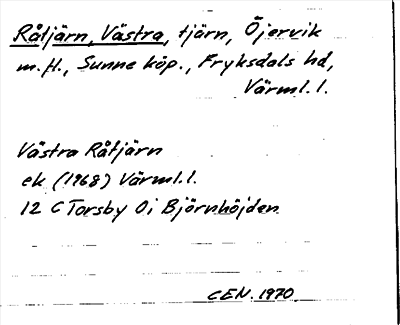 Råtjärn, Västra, tjärn, Öjervik
m.fl., Sunne köp., Fryksdals hd,
Värml.l.
Västra Råtjärn
ek (1968) Värml.l.
12 C Torsby 0i Björnhöjden
CEN. 1970